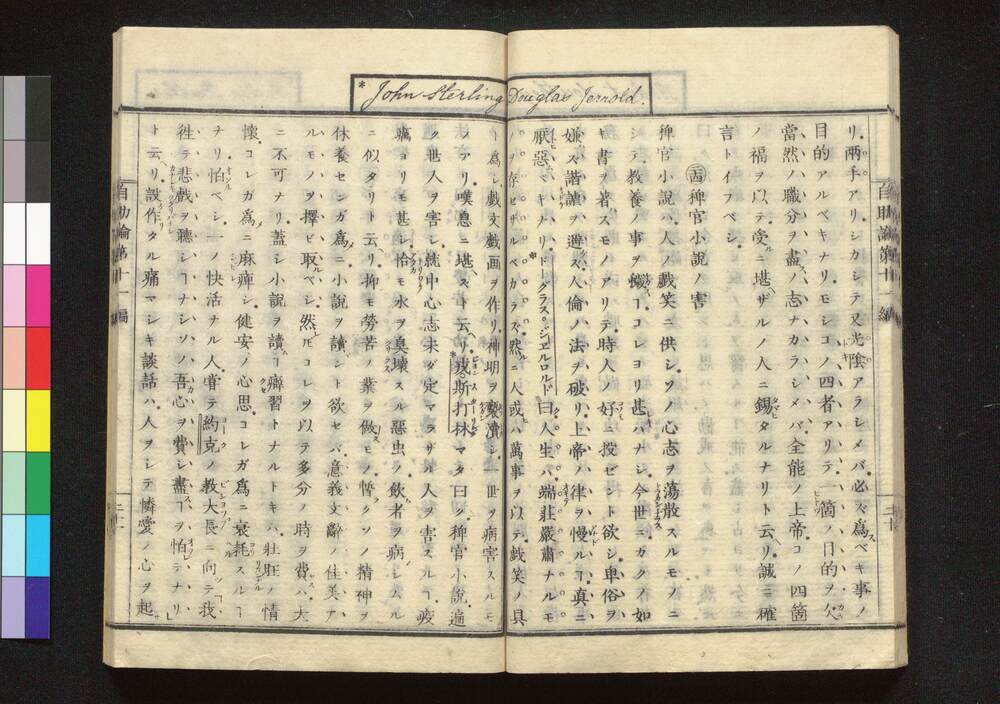 *John Sterling Douglas Jerrold.
自助論第十一編
リ。兩手アリ。シカシテ又光陰アラシメバ。必ズ爲スベキ事ノ
目的アルベキナリ。モシコノ四者アリテ。一箇ノ目的ヲ欠カバ。
當然ノ職分ヲ盡スノ志ナカラシメバ。全能ノ上帝。コノ四箇
ノ福ヲ以テ。受ルニ堪ザルノ人ニ錫タルナリト云リ。誠ニ確
言トイフベシ。
稗官小説ノ害
稗官小説ハ。人ノ戯笑ニ供シ。ソノ心志ヲ蕩散スルモノニ
シテ。教養ノ事ヲ。コレヨリ甚シキハナシ。今世ニカクノ如
キ書ヲ著スモノアリテ。時人ノ好ニ投ゼント欲シ。卑俗ヲ
嫌ズ。諧謔ヲ避ズ。人倫ノ法ヲ破リ。上帝ノ律ヲ慢ルヿ。眞ニ
厭惡スベキナリ。*ドークラス。ジエルロルド曰ク。人生ハ。端莊嚴肅ナルモ
ノヲ存セザルベカラズ。然ルニ人或ハ萬事ヲ以テ。戯笑ノ具
ト爲シ。戯文戯画ヲ作リ。神明ヲ褻瀆シ。一世ヲ病害スルモ
ノアリ。嘆息ニ堪ズト云リ。*戎斯打林マタ曰ク。稗官小説。遍
ク世人ヲ害シ。就中心志未ダ定マラザル人ヲ害スルヿ。疫
癘ヨリモ甚シ。恰モ水ヲ臭壞スル惡虫ノ。飲者ヲ病シムル
ニ似タリト云リ。抑モ勞苦ノ業ヲ做モノ。暫クソノ精神ヲ
休養センガ爲ニ。小説ヲ讀ント欲セバ。意義文辭ノ佳美ア
ルモノヲ擇ビ取ベシ。然レ𪜈コレヲ以テ多分ノ時ヲ費ハ。大
ニ不可ナリ。蓋シ小説ヲ讀ヿ癖習トナルトキハ。壯旺ノ情
懷。コレガ爲メニ麻痺シ。健安ノ心思。コレガ爲ニ衰耗スルヿ
ナリ。怕ベシ。一ノ快活ナル人。嘗テ約克ノ教大長ニ向テ。我
往テ悲戯ヲ聽シヿナシ。ソノ吾心ヲ費シ盡スヿヲ怕テナリ
ト云ヘリ。設作タル痛マシキ談話ハ。人ヲシテ憐愛ノ心ヲ起
自助論第十一編